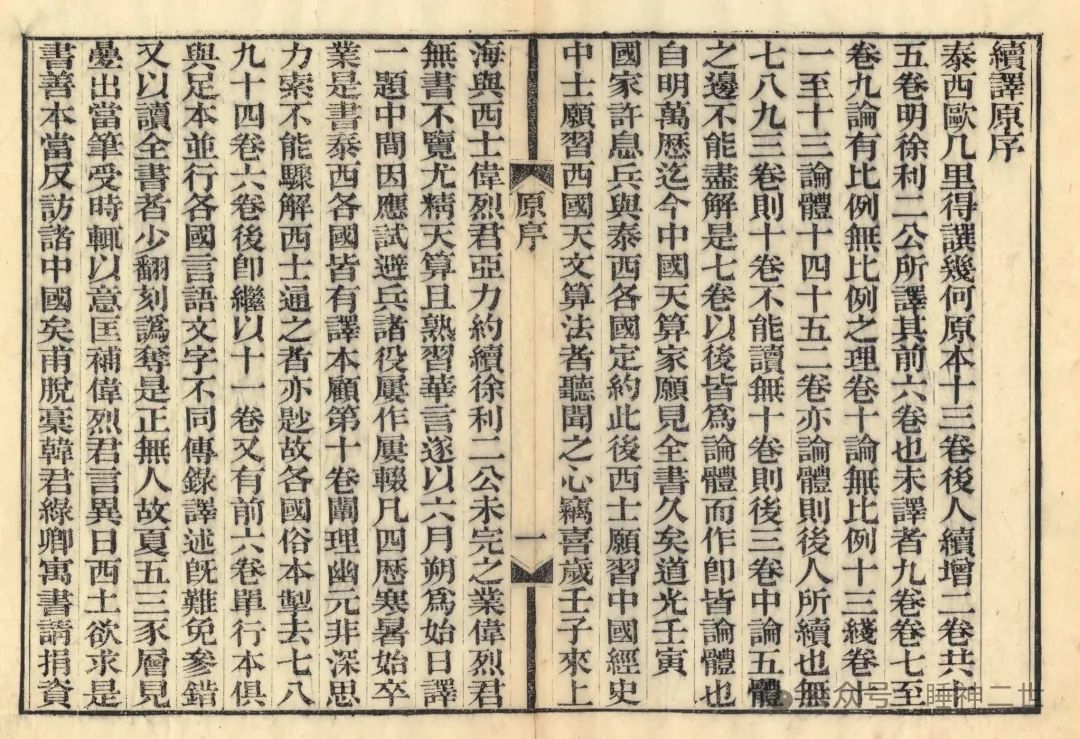 續譯原序
泰西歐几里得譔幾何原本十三卷後人續增二卷共十
五卷明徐利二公所譯其前六卷也未譯者九卷卷七至
卷九論有比例無比例之理卷十論無比例十三綫卷十
一至十三論體十四十五二卷亦論體則後人所續也無
七八九三卷則十卷不能讀無十卷則後三卷中論五體
之邊不能盡解是七卷以後皆爲論體而作卽皆論體也
自明萬歷迄今中國天算家願見全書久矣道光壬寅
國家許息兵與泰西各國定約此後西士願習中國經史
中士願習西國天文算法者聽聞之心竊喜歲壬子來上
原序
一
海與西士偉烈君亞力約續徐利二公未完之業偉烈君
無書不覽尤精天算且熟習華言遂以六月朔爲始日譯
一題中間因應試避兵諸役屢作屢輟凡四歷寒暑始卒
業是書泰西各國皆有譯本顧第十卷闡理幽元非深思
力索不能驟解西士通之者亦尠故各國俗本掣去七八
九十四卷六卷後卽繼以十一卷又有前六卷單行本俱
與足本並行各國言語文字不同傳錄譯述旣難免參錯
又以讀全書者少翻刻譌奪是正無人故夏五三豕層見
曡出當筆受時輒以意匡補偉烈君言異日西士欲求是
書善本當反訪諸中國矣甫脫稾韓君綠卿寓書請捐資
公众号 睡神二世